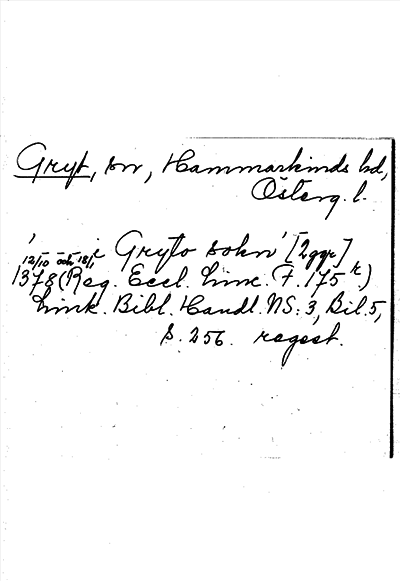 Gryt, sn, Hammarkinds hd,
Österg. l.
' i Gryto sokn' [2 ggr]
12/10 och 18/
1378 (Reg. Eccl. Linc. F. 175 r.)
Link. Bibl. Handl. NS. 3, Bil. 5,
s. 256. regest.